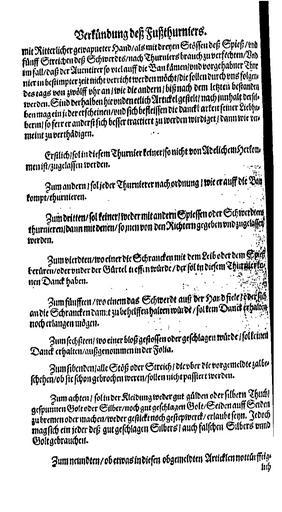 Verkündung deß Fußthurniers.
mit Ritterlicher gewapneter Hand/ als mit dreyen Stössen deß Spieß/ vnd
fünff Streichen deß Schwerdts/ nach Thurniers brauch zu verfechten/ Vnd
im fall/ daß der Auentirer so viel auff die Ban kämen/ vnd vorgehabter Thur
nier in bestimpter zeit nicht verricht werden möcht/ die sollen durch vns folgen
des tags von zwölff vhr an/ wie die andern/ biß nach dem letzten bestanden
werden. Sind derhalben hierunden etlich Artickel gestelt/ nach innhalt derselben
mag ein jeder erscheinen/ vnd sich befleissen die danck
so fer er anderst sich besser tractiert zu werden wirdiget/ dann wir
meint zu verthädigen.
Erstlich/ sol in diesem Thurnier keiner/ so nicht von Adelichem Herkom-
men ist/ zugelassen werden.
Zum andern/ sol jeder Thurnierer nach ordnung/ wie er auff die Ban
kompt/ thurnieren.
Zum dritten/ sol keiner/ weder mit andern Spiessen oder Schwerdten
thurnieren/ dann mit denen/ so jnen von den Richtern gegeben vnd zugelassen
werden.
Zum vierdten/ wo einer die Schrancken mit dem Leib oder dem Spieß
berüren/ oder vnder der Gürtel treffen würde/ der sol in diesem Thurnier kei-
nen Danck haben.
Zum fünfften/ wo einem das Schwerdt auß der Hand fiele/ oder sich
an die Schrancken damit zu behelffen halten würde/ sol kein Danck erhalten
noch erlangen mögen.
Zum sechsten/ wo einer bloß gestossen oder geschlagen würde/ sol keinen
Danck erhalten/ außgenommen in der Folia.
Zum sibenden/ alle Stöß oder Streich/ die vber die vorgemeldte zal be-
schehen/ ob sie schon gebrochen weren/ sollen nicht passiert werden.
Zum achten/ sol in der Kleidung weder gut gülden oder silbern Thuch/
gespunnen Golt oder Silber/ noch gut geschlagen Golt/ Seiden auff Seiden
zu bremen oder machen/ weder gestickt noch gesteptwerck/ erlaubt seyn. Jedoch
mag sich ein jeder deß gut geschlagen Silbers/ auch falschen Silbers vnnd
Golt gebrauchen.
Zum neundten/ ob etwas in diesen obgemeldten Artickeln nottürfftig-
lich